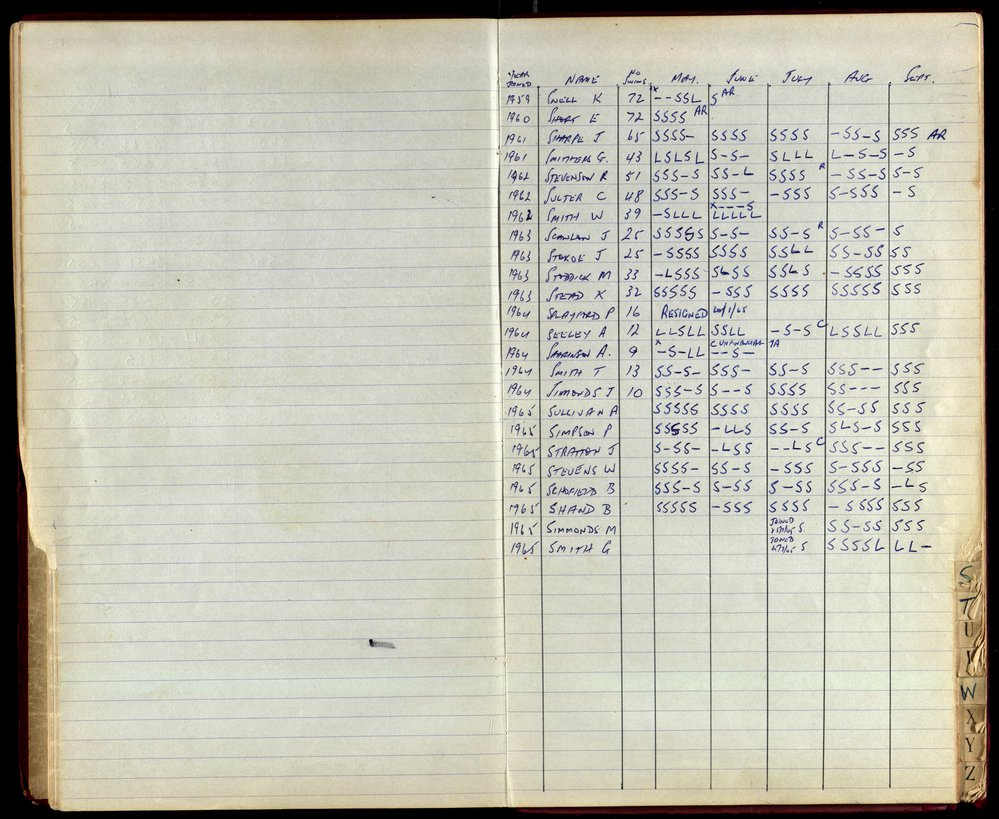 YEAR JOINED NAME NO SWIMS MAY. JUNE JULY AUG SEPT.
1959 SNELL K 72 x--SSL S AR
1960 SHORT E 72 SSSS AR
1961 SHARPE J 65 SSSS- SSSS SSSS -SS-S SSS AR
1961 SMITHERS G. 43 LSLSL S-S- SLLL L-S-S -S
1962 STEVENSON R 51 SSS-S SS-L SSSS R -SS-S S-S
1962 SULTER C 48 SSS-S SSS- -SSS S-SSS -S
1962 SMITH W 39 -SLLL LLLLL x----S
1963 SCANLAN J 25 SSSSS S-S- SS-S R S-SS- S
1963 J 25 -SSSS SSSS SSLL SS-SS SS
1963 STODDICK M 33 -LSSS SLSS SSLS -SSSS SSS
1963 STEAD K 32 SSSSS -SSS SSSS SSSSS SSS
1964 P 16 RESIGNED 20/1/65
1964 SEELEY A 12 LLSLL SSLL -S-S C LSSLL SSS
1964 A. 9 x -S-LL --S- TA
1964 SMITH T 13 SS-S- SSS- SS-S SSS-- SSS
1964 SIMONDS J 10 SSS-S S--S SSSS SS--- SSS
1965 SULLIVAN A SSSSS SSSS SSSS SS-SS SSS
1965 SIMPSON P SSSSS -LLS SS-S SLS-S SSS
1965 STRATTON J S-SS- -LSS --LS C SSS-- SSS
1965 STEVENS W SSSS- SS-S -SSS S-SSS -SS
1965 SCHOFIELD B SSS-S S-SS S-SS SSS-S -LS
1965 SHAND B SSSSS -SSS SSSS -SSSS SSS
1965 SIMMONDS M JOINED S SS-SS SSS
1965 SMITH G JOINED S SSSSL LL-
S
T
U
W
X
Y
Z